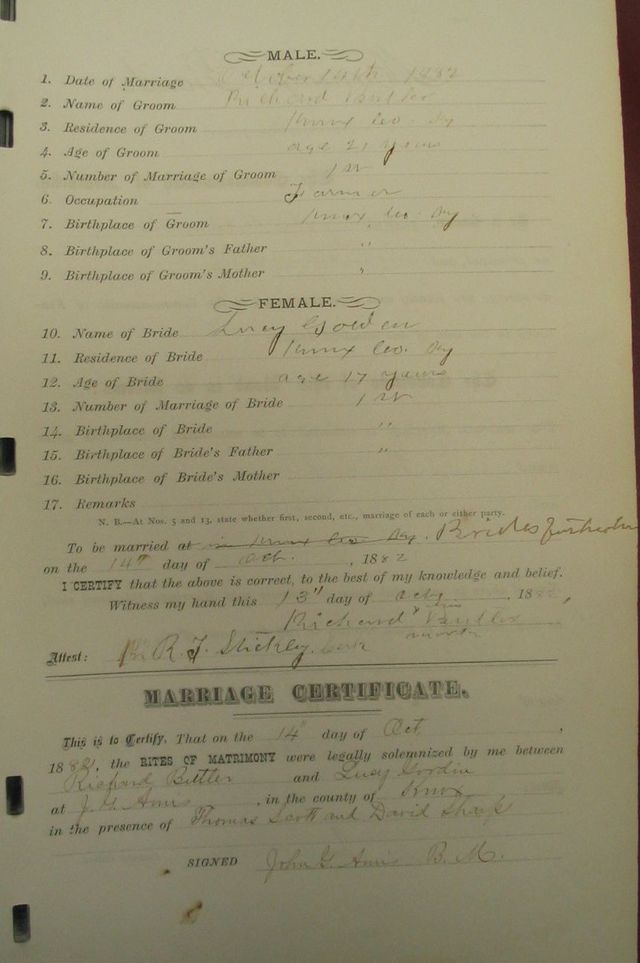 MALE.
1. Date of Marriage October 14th 1882
2. Name of Groom Richard Butler
3. Residence of Groom Knox Co. Ky
4. Age of Groom age 21 years
5. Number of Marriage of Groom 1st
6. Occupation Farmer
7. Birthplace of Groom Knox Co. Ky
8. Birthplace of Groom's Father "
9. Birthplace of Groom's Mother "
FEMALE.
10. Name of Bride Lucy Golden
11. Residence of Bride Knox Co. Ky
12. Age of Bride age 17 years
13. Number of Marriage of Bride 1st
14. Birthplace of Bride "
15. Birthplace of Bride's Father "
16. Birthplace of Bride's Mother
17. Remarks
N. B.—At Nos. 5 and 13, state whether first, second, etc., marriage of each or either party.
To be married at in Knox Co Ky. Brides
on the 14" day of Oct. , 1882
I CERTIFY that the above is correct, to the best of my knowledge and belief.
Witness my hand this 13" day of Oct , 1882,
Richard x Butler
his
mark
Attest: R. J. Stickley. Clerk
MARRIAGE CERTIFICATE.
This is to Certify, That on the 14" day of Oct ,
1882, the RITES OF MATRIMONY were legally solemnized by me between
Richard Butler and Lucy Gordin
at J. G. Amis , in the county of Knox
in the presence of Thomas Scott and David
SIGNED John G. Amis B. M.